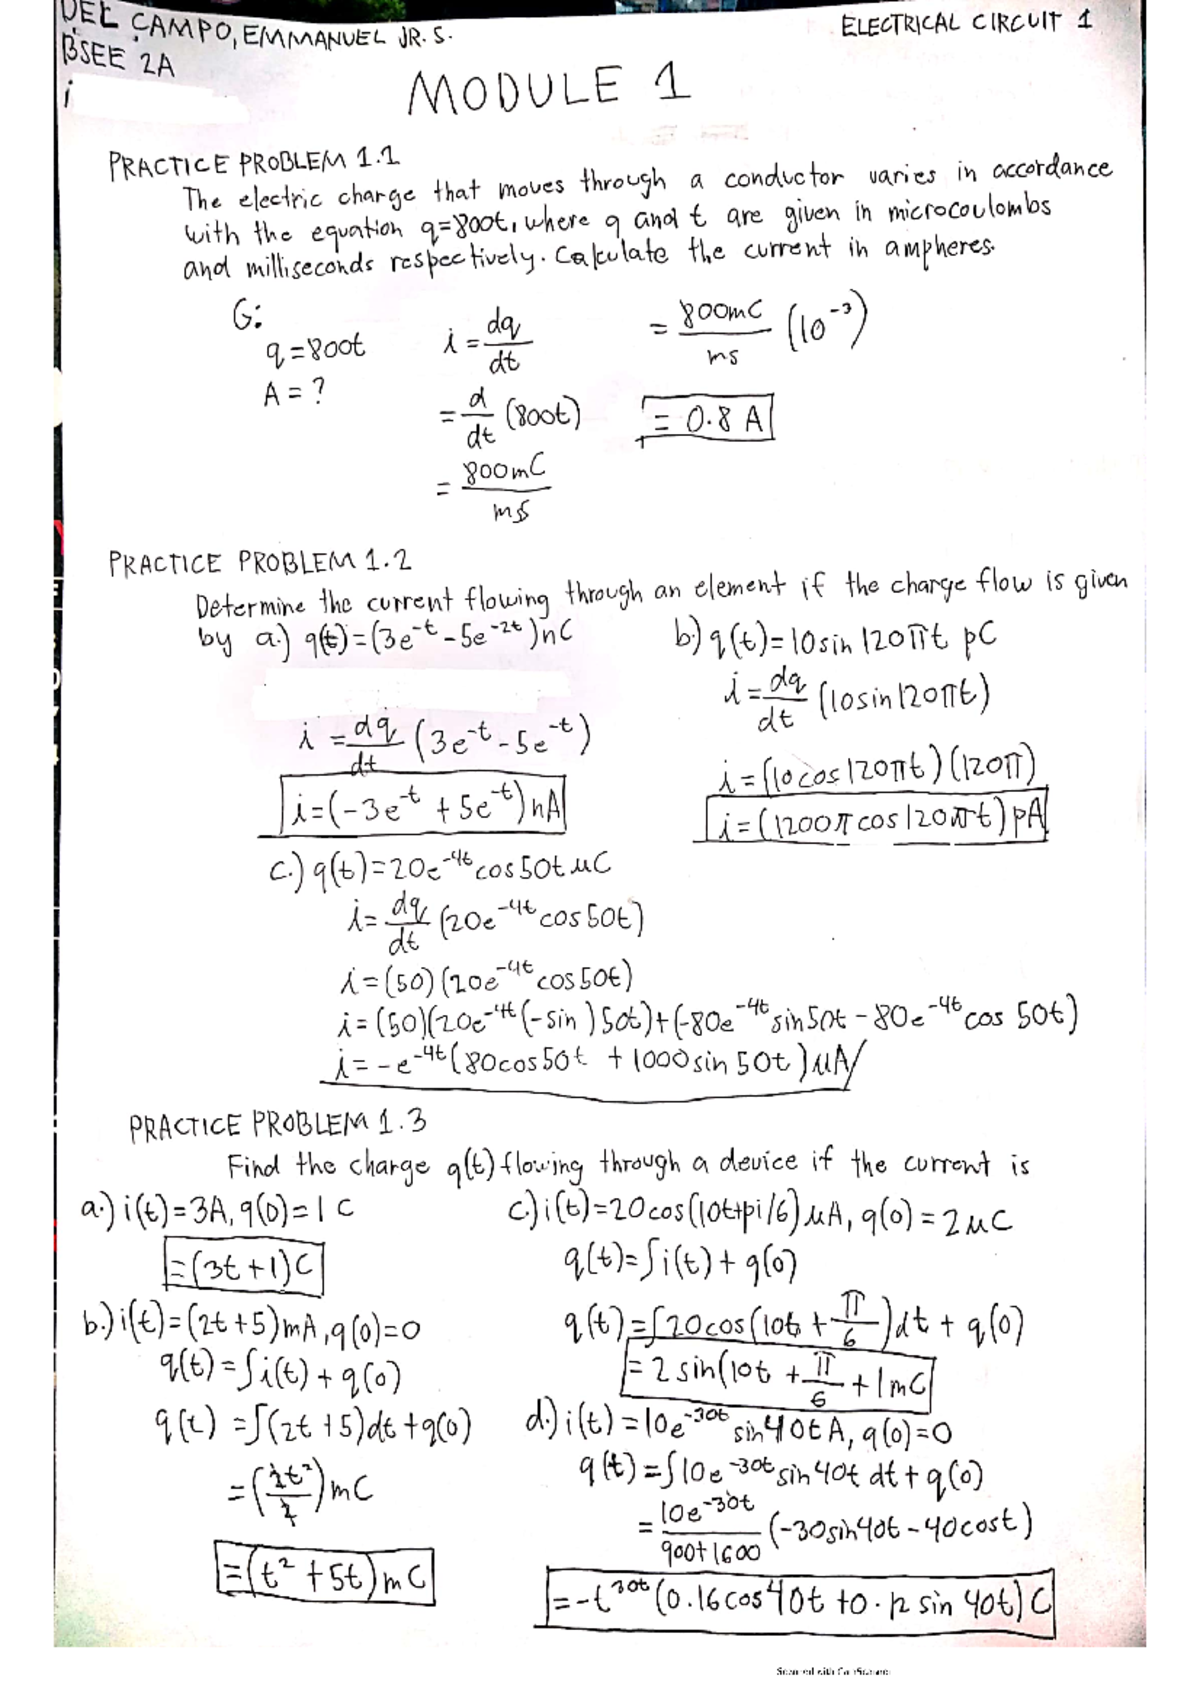 DEL CAMPO, EMMANUEL JR. S.
ELECTRICAL CIRCUIT 1
BSEE 2A
i
MODULE 1
PRACTICE PROBLEM 1.1
The electric charge that moves through a conductor varies in accordance
with the equation q=800t, where q and t are given in microcoulombs
and milliseconds respectively. Calculate the current in ampheres.
G:
q=800t
A = ?
i = dq/dt
= d/dt (800t)
= 800mC/ms
= 800mC/ms (10⁻³)
= 0.8 A
PRACTICE PROBLEM 1.2
Determine the current flowing through an element if the charge flow is given
by a.) q(t)=(3e^-t - 5e^-2t)nC
i = dq/dt (3e^-t - 5e^-t)
i=(-3e^-t + 5e^-t)nA
b.) q(t)=10sin120πt pC
i = dq/dt (10sin120πt)
i=(10cos120πt)(120π)
i=(1200πcos120πt)pA
c.) q(t)=20e^-4t cos50t μC
i = dq/dt (20e^-4t cos50t)
i=(50)(20e^-4t cos50t)
i=(50)(20e^-4t(-sin)50t)+(-80e^-4t sin50t - 80e^-4t cos 50t)
i = -e^-4t(80cos50t + 1000sin 50t)μA
PRACTICE PROBLEM 1.3
Find the charge q(t) flowing through a device if the current is
a.) i(t)=3A, q(0)=1 C
=(3t+1)C
b.) i(t)=(2t+5)mA, q(0)=0
q(t)=∫i(t)+q(0)
q(t) =∫(2t+5)dt+q(0)
=(2t²/2)mC
=(t²+5t)mC
c.) i(t)=20cos(10t+pi/6)μA, q(0)=2μC
q(t)=∫i(t)+q(0)
q(t)=∫20cos(10t+π/6)dt+q(0)
=2sin(10t+π/6+1mC
d.) i(t)=10e^-30t sin40tA, q(0)=0
q(t)=∫10e^-30t sin40t dt+q(0)
= 10e^-30t/900+1600 (-30sin40t-40cost)
=-t^30t(0.16cos40t+0.12 sin 40t)C